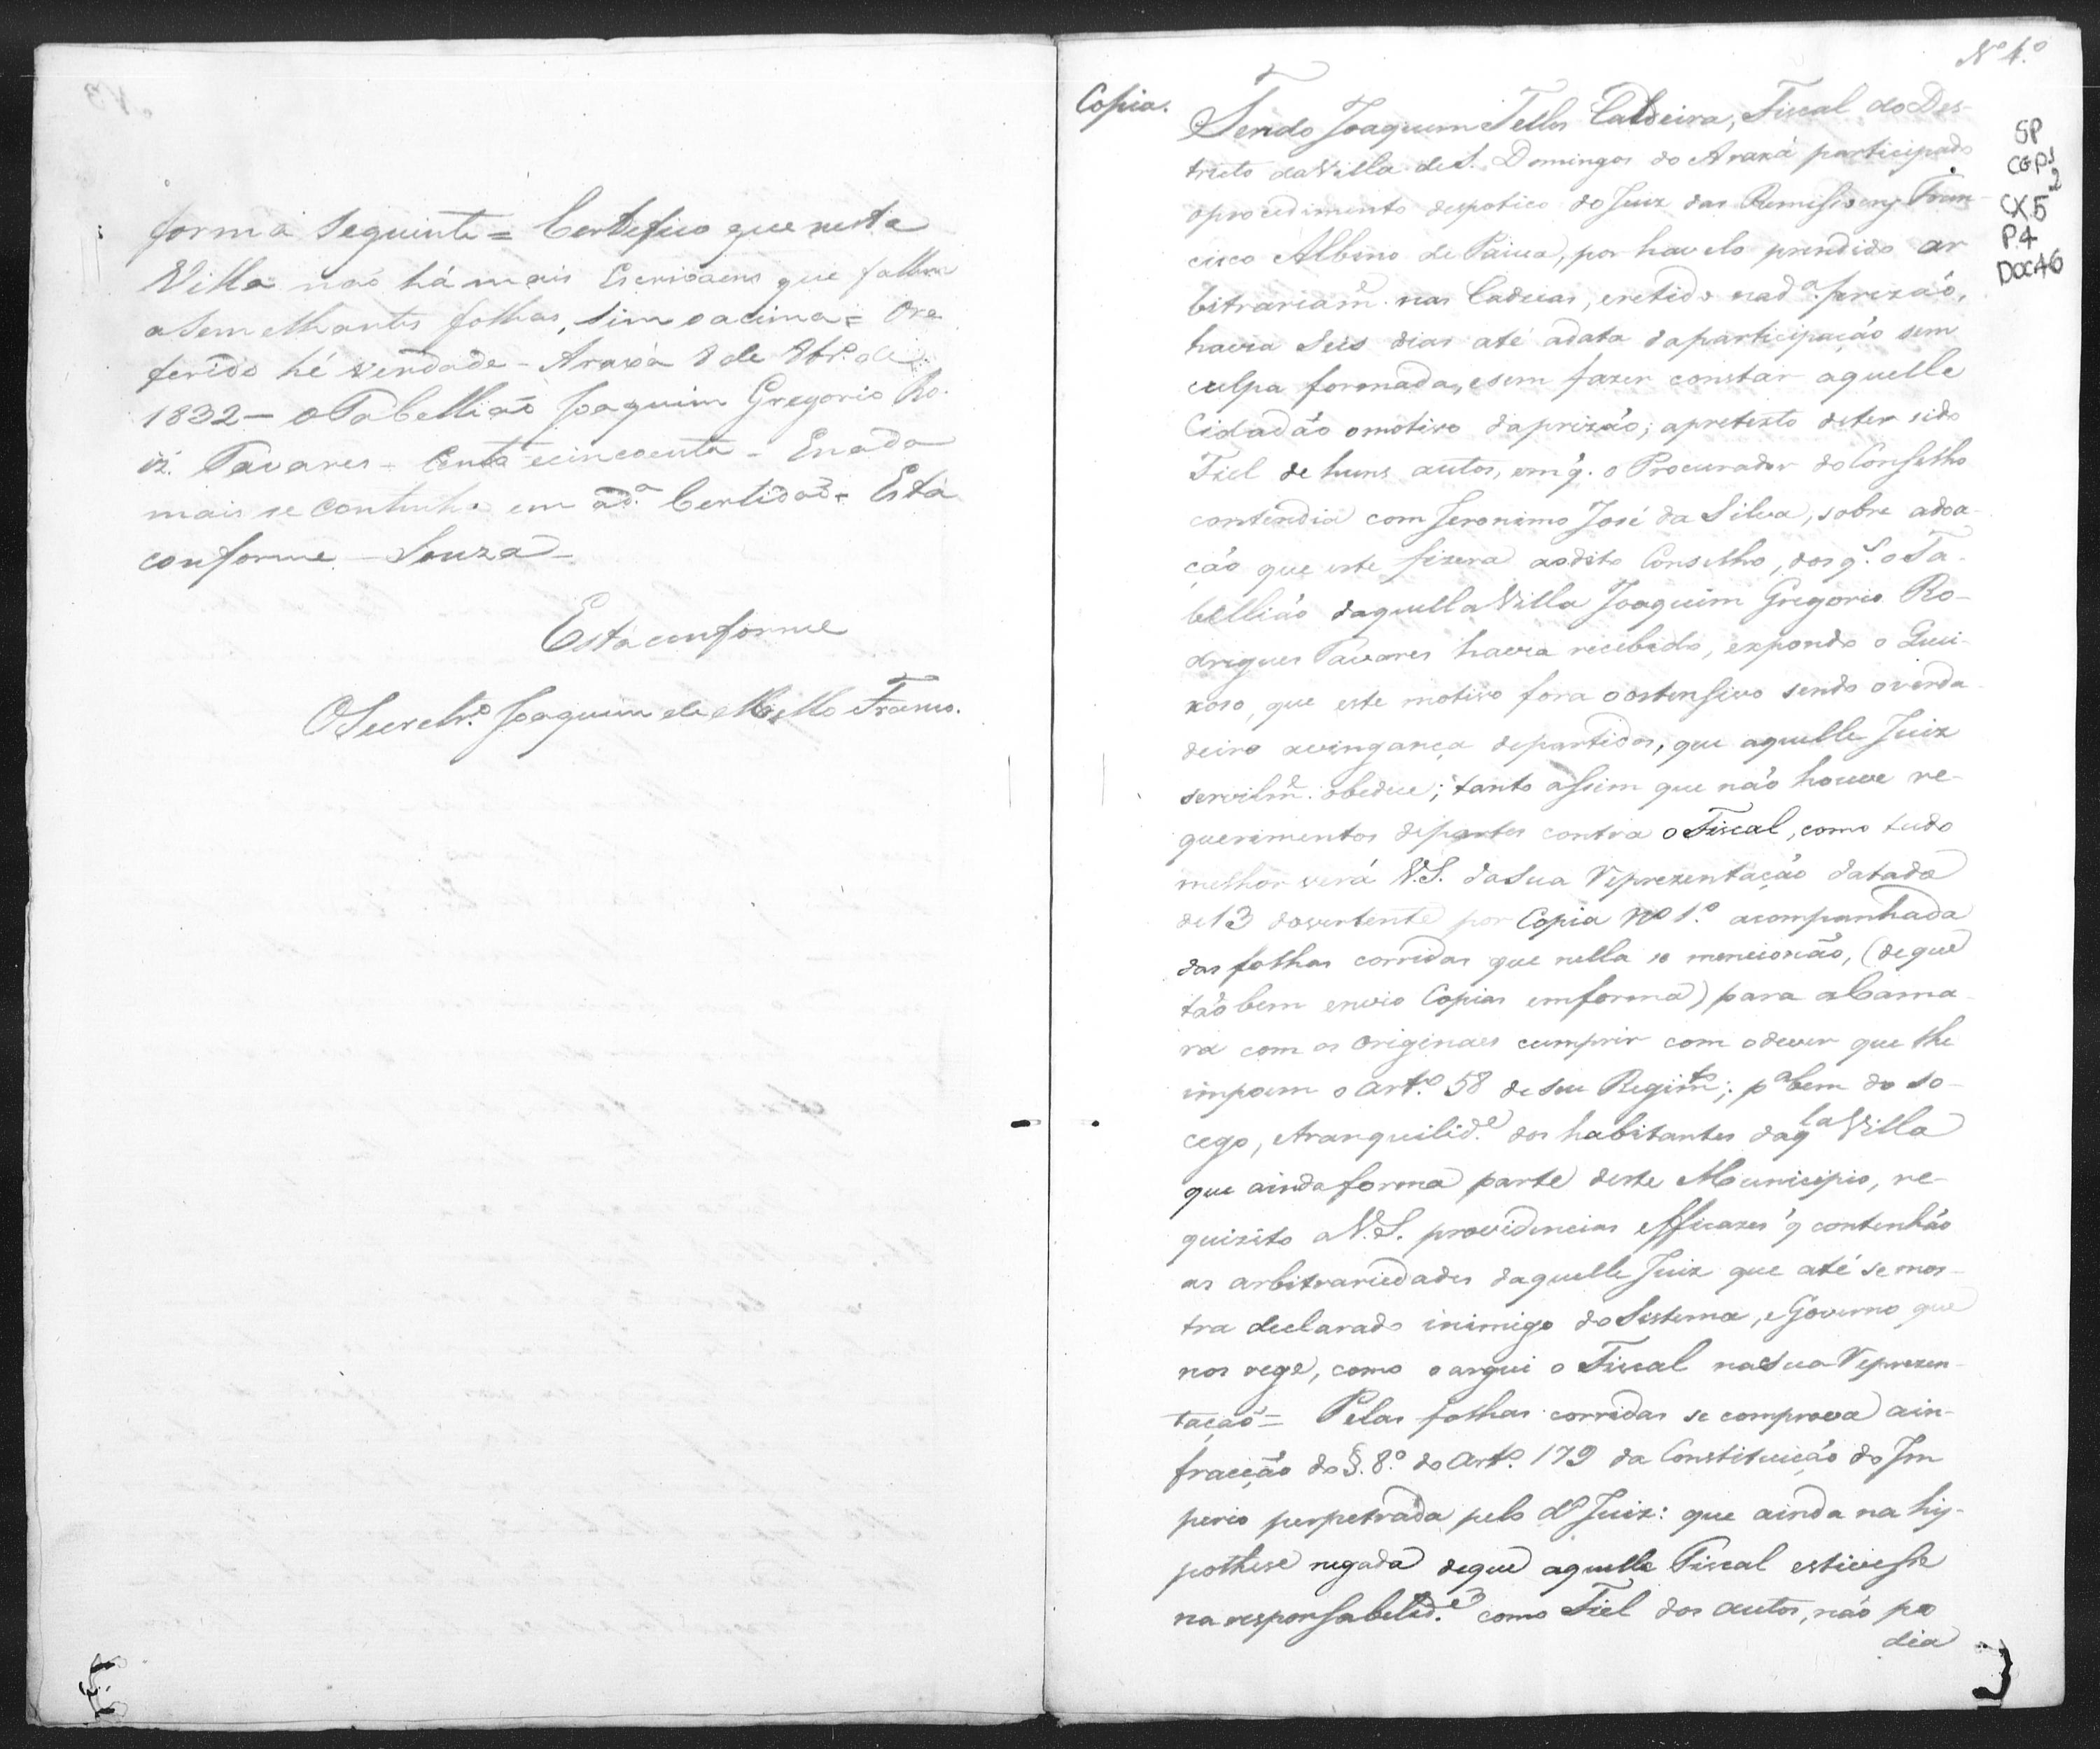 forma seguinte = Certefico que nesta
Villa não há mais Escrivaens que fallem
a Semelhantes folhas, sim o acima = O re
ferido hé verdade - Araxá 8 de 8br.º de
1832 - O Tabellião Joaquim Gregorio Ro.
iz. Tavares - Cento e cincoenta - E nada
mais se continha em a d.ª Certidaõ = Está
conforme - Souza -
Está conforme
O Secretr.º Joaquim de Mello Franco.
Nº 4.º
Copia.
SP
CGP1
2
CX.5
P4
DOC46
Tendo Joaquim Telles Caldeira, Fiscal do Des-
tricto da Villa de S. Domingos do Araxá participado
o procedimento despotico do Juiz das Remissoens Fran-
cisco Albino de Paiva, por havelo prendido ar
bitrariam.e nas Cadeias, e retido na d.ª prizaõ,
havia Seis dias até a data da participação sem
culpa formada, e sem fazer constar aquelle
Cidadão o motivo da prizão; a pretexto de ter sido
Fiel de huns autos, em q. o Procurador do Conselho
contendia com Jeronimo José da Silva, sobre a doa-
ção que este fizera ao dito Conselho, dos q.s o Ta-
bellião daquella Villa Joaquim Gregorio Ro-
drigues Tavares havia recebido, expondo o Quei-
xoso, que este motivo fora o ostensivo sendo o verda-
deiro a vingança de partidos, que aquelle Juiz
servilm.e obedece; tanto assim que não houve re-
querimentos de partes contra o Fiscal, como tudo
melhor verá V.S. da Sua Reprezentação datada
de 13 do vertente por Copia Nº 1.º acompanhada
das folhas corridas que nella se mencionão, (de que
tãobem envio Copias em forma) para a Cama-
ra com os Originaes cumprir com o dever que lhe
impoem o Art.º 58 de seu Regim.to; p.ª bem do so-
cego, e tranquilid.e dos habitantes daq.la Villa
que ainda forma parte deste Municipio, re-
quizito a V.S. providencias efficazes q' contenhão
as arbitrariedades daquelle Juiz que até se mos-
tra declarado inimigo do Sistema, e Governo que
nos rege, como o argui o Fiscal na Sua Reprezen-
tação = Pelas folhas corridas se comprova a in-
fracção do §. 8.º do Art.º 179 da Constituição do Im
perio perpetrada pelo d.º Juiz: que ainda na hy-
pothese negada de que aquelle Fiscal estivesse
na responsabelid.e como Fiel dos autos, não po
dia